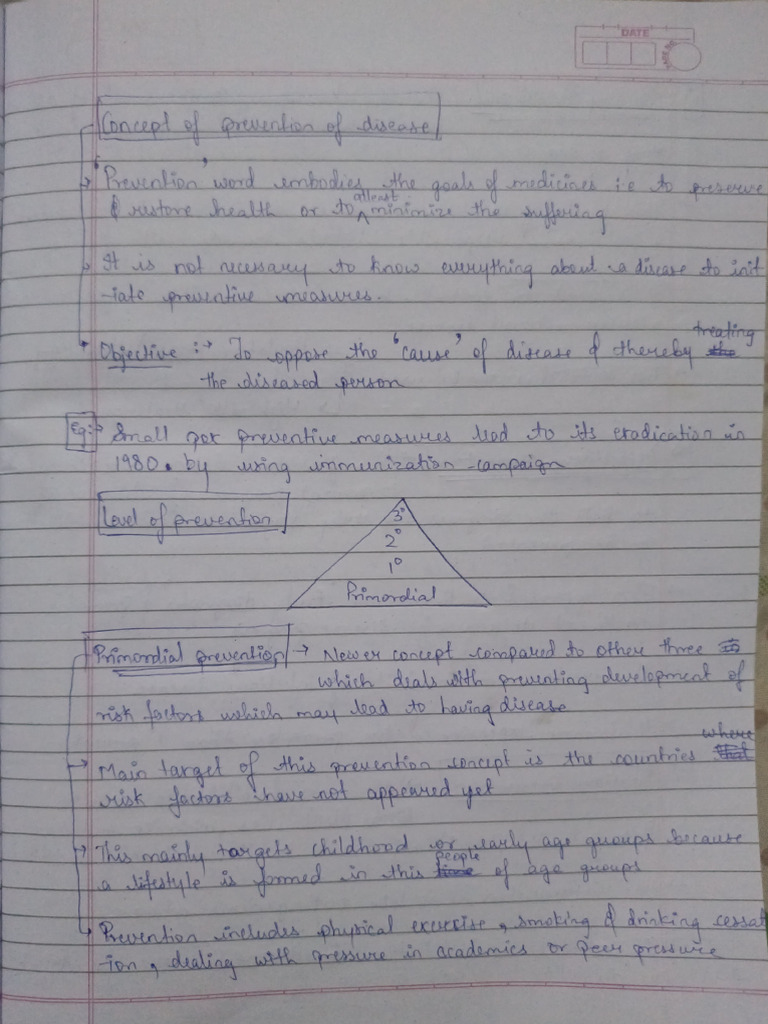 DATE
Concept of prevention of disease
'Prevention' word embodies the goals of medicines i.e to preserve
& restore health or to atleast minimize the suffering
It is not necessary to know everything about a disease to init
-iate preventive measures.
Objective :→ To oppose the 'cause' of disease & thereby treating
the diseased person
Eg:→ Small pox preventive measures lead to its eradication in
1980. by using immunization campaign
Level of prevention
3°
2°
1°
Primordial
Primordial prevention → Newer concept compared to other three
which deals with preventing development of
risk factors which may lead to having disease
→ Main target of this prevention concept is the countries where
risk factors have not appeared yet
→ This mainly targets childhood or early age groups because
a lifestyle is formed in this people of age groups
→ Prevention includes physical exercise, smoking & drinking cessat
-ion, dealing with pressure in academics or peer pressure